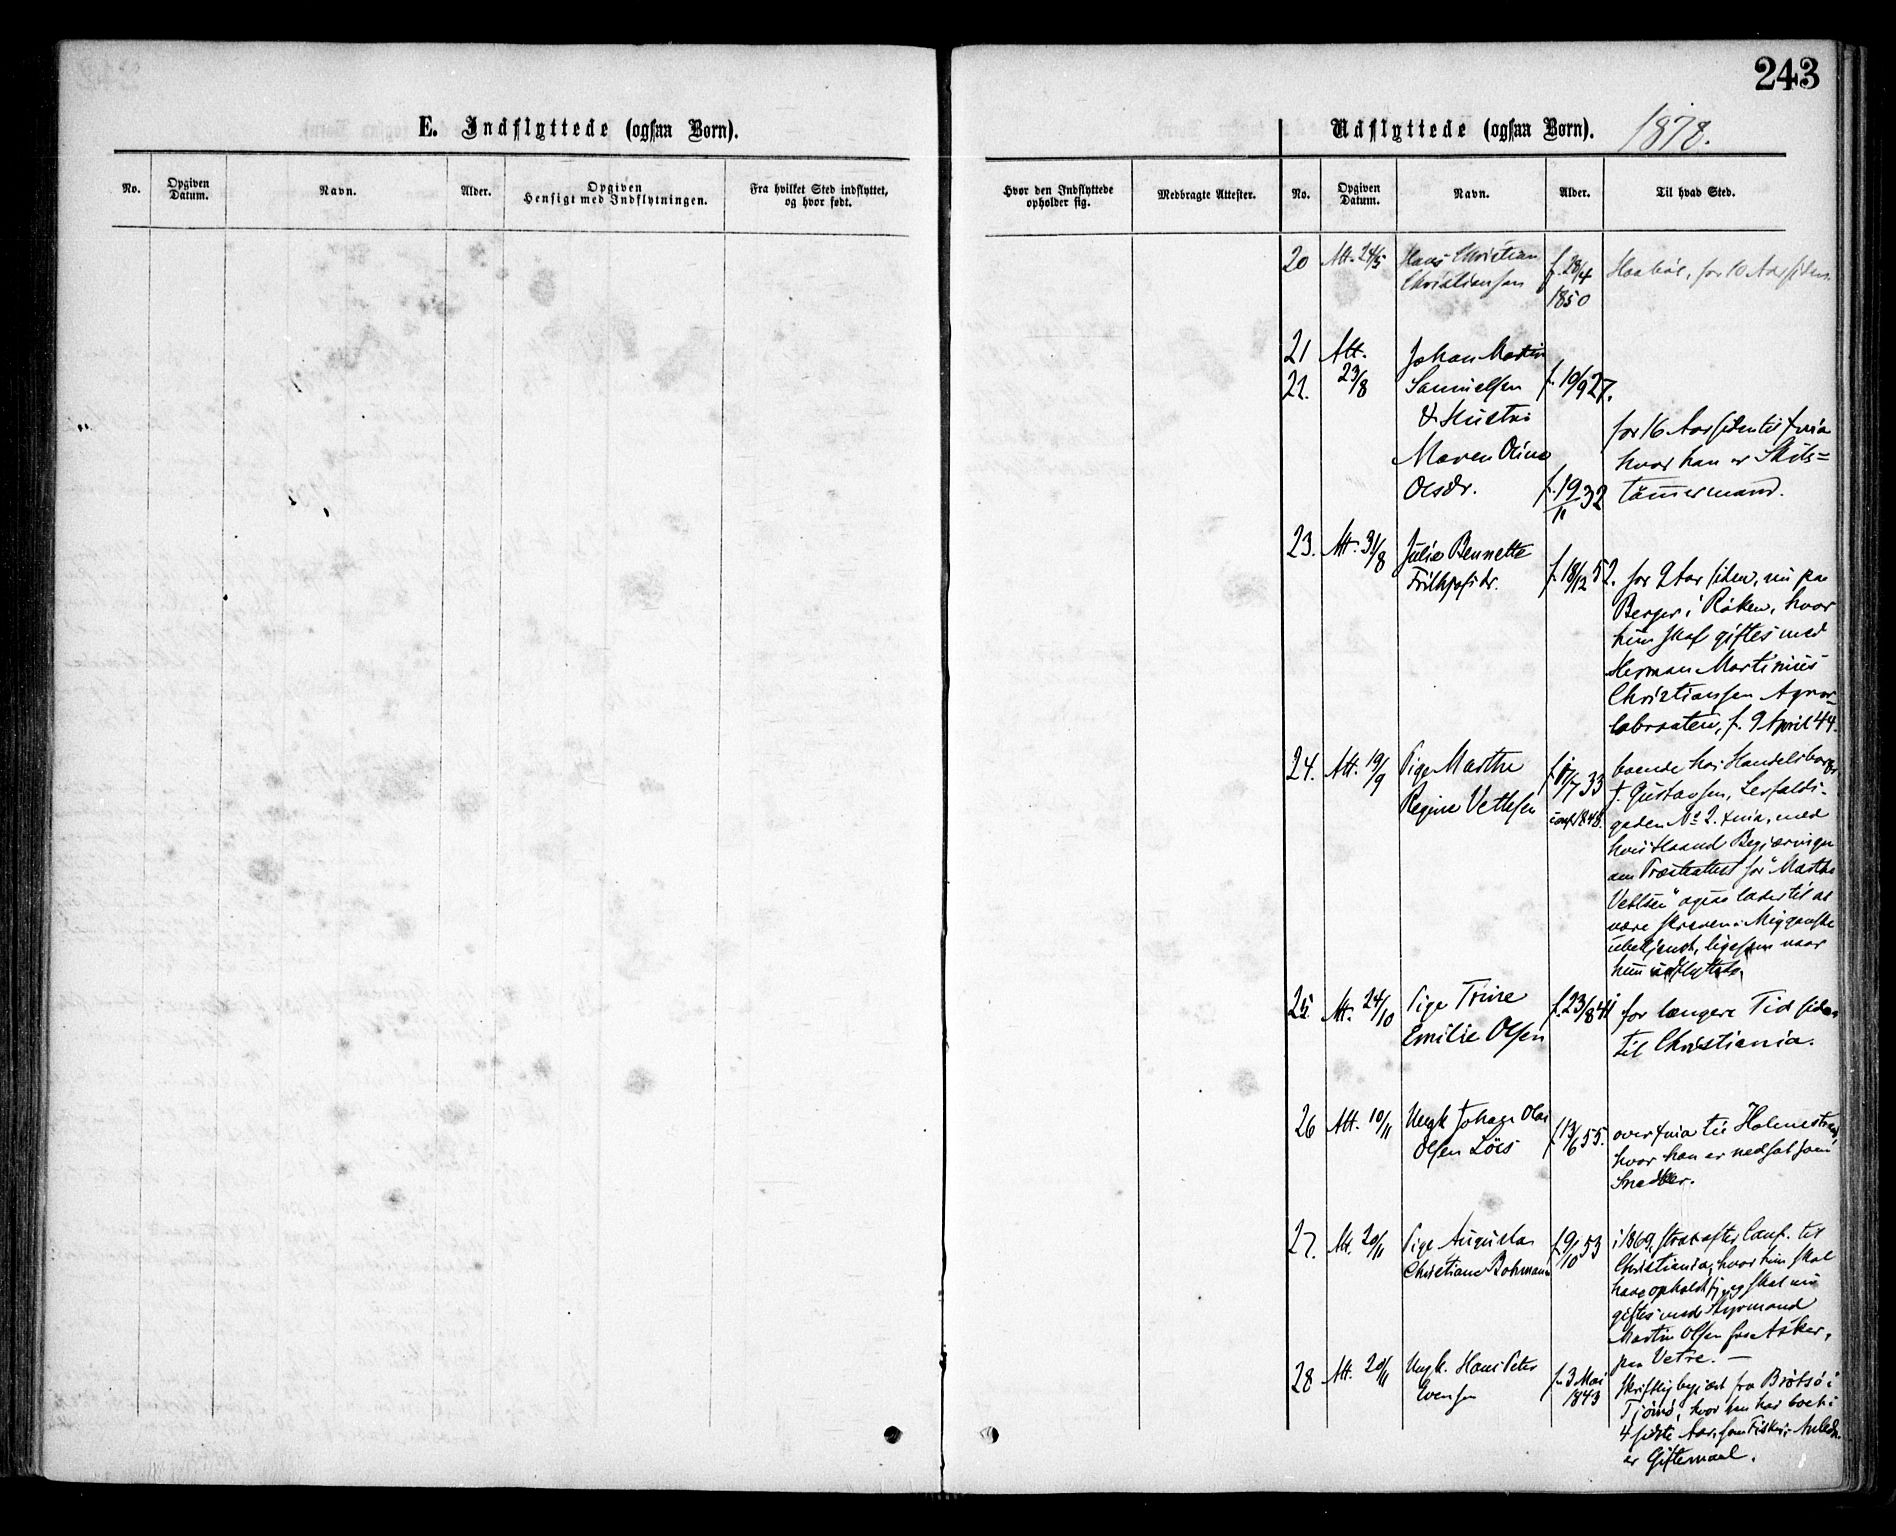 243
E. Indflyttede (ogsaa Børn).
Udflyttede (ogsaa Børn). 1878.
No.
Opgiven Datum.
Navn.
Alder.
Opgiven Hensigt med Indflytningen.
Fra hvilket Sted indflyttet, og hvor født.
Hvor den Indflyttede opholder sig.
Medbragte Attester.
No.
Opgiven Datum.
Navn.
Alder.
Til hvad Sted.
20 Att. 24/5 Hans Christian f. 28/4 for 10 Aar siden.
Christiansen 1850
21 Att. Johan Martin
22. 23/8 Samuelsen f. 10/9 27.
& Hustru for 16 Aar siden til Xnia
Maren Oline hvor han er Skibs=
Olsdr. f. 19/11 32 tømmermand.
23. Att. 31/8 Julie Bennette
Frithjofsdr. f. 18/12 52. for 9 Aar siden, nu paa
Berger i Røken, hvor
hun skal giftes med
Herman Martinius
Christiansen
f. 9 April 44.
24. Att. 19/9 Pige Marthe f. 17/7 33 boende hos Handelsborger
Regine Vethesen conf. 1848. Gustavsen,
gaden No 2. Xnia, med
hvis Haand Begjæringen
om Præsteattest for "Marthe
" ogsaa lader til at
være skreven. Mig ganske
ubekjendt, ligesom naar
hun udflyttede.
25. Att. 24/10 Pige Trine f. 23/8 41 for længere Tid siden
Emilie Olsen til Christiania.
26 Att. 10/11 Ungk. Johan Olai f. 13/6 55. over Xnia til Holmestrand,
Olsen hvor han er nedsat som
Snedker.
27. Att. 20/11 Pige Augusta f. 9/10 53 i 1869, strax efter Conf. til
Christiane Bohmann Christiania, hvor hun skal
have opholdt sig, og skal nu
giftes med Styrmand
Martin Olsen fra Asker,
paa Vetre. —
28 Att. 20/11 Ungk. Hans Peter f. 3 Mai skriftlig begjært fra Brøtsø i
Evensen 1843 Tjømø, hvor han har boet i
4 sidste Aar, som Fisker. Anledn.
er Giftermaal.